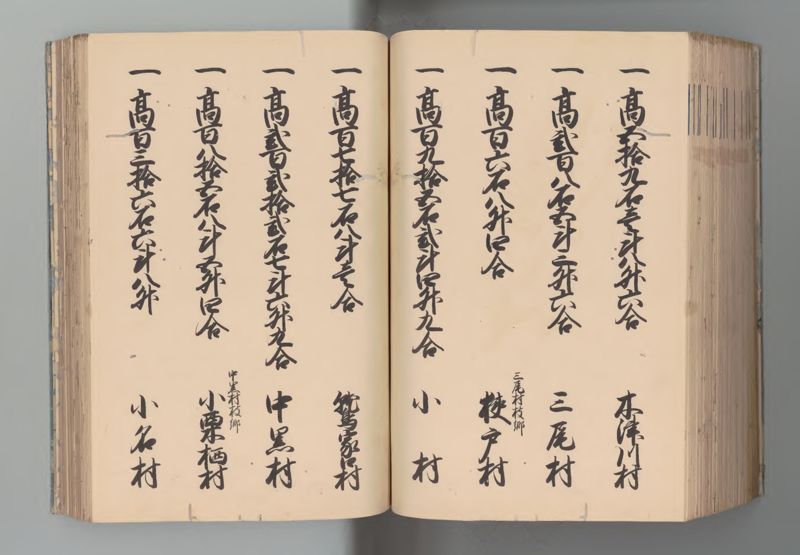 一 高五拾九石壱斗八升六合 木津川村
一 高弐百八石五斗三升六合 三尾村
一 高百六石八升四合 三尾村枝郷 桟戸村
一 高百九拾五石弐斗四升九合 小村
一 高百七拾七石八斗壱合 家口村
一 高弐百弐拾弐石七斗六升九合 中黒村
一 高百八拾五石八斗五升四合 中黒村枝郷 小栗栖村
一 高百三拾六石六斗八升 小名村